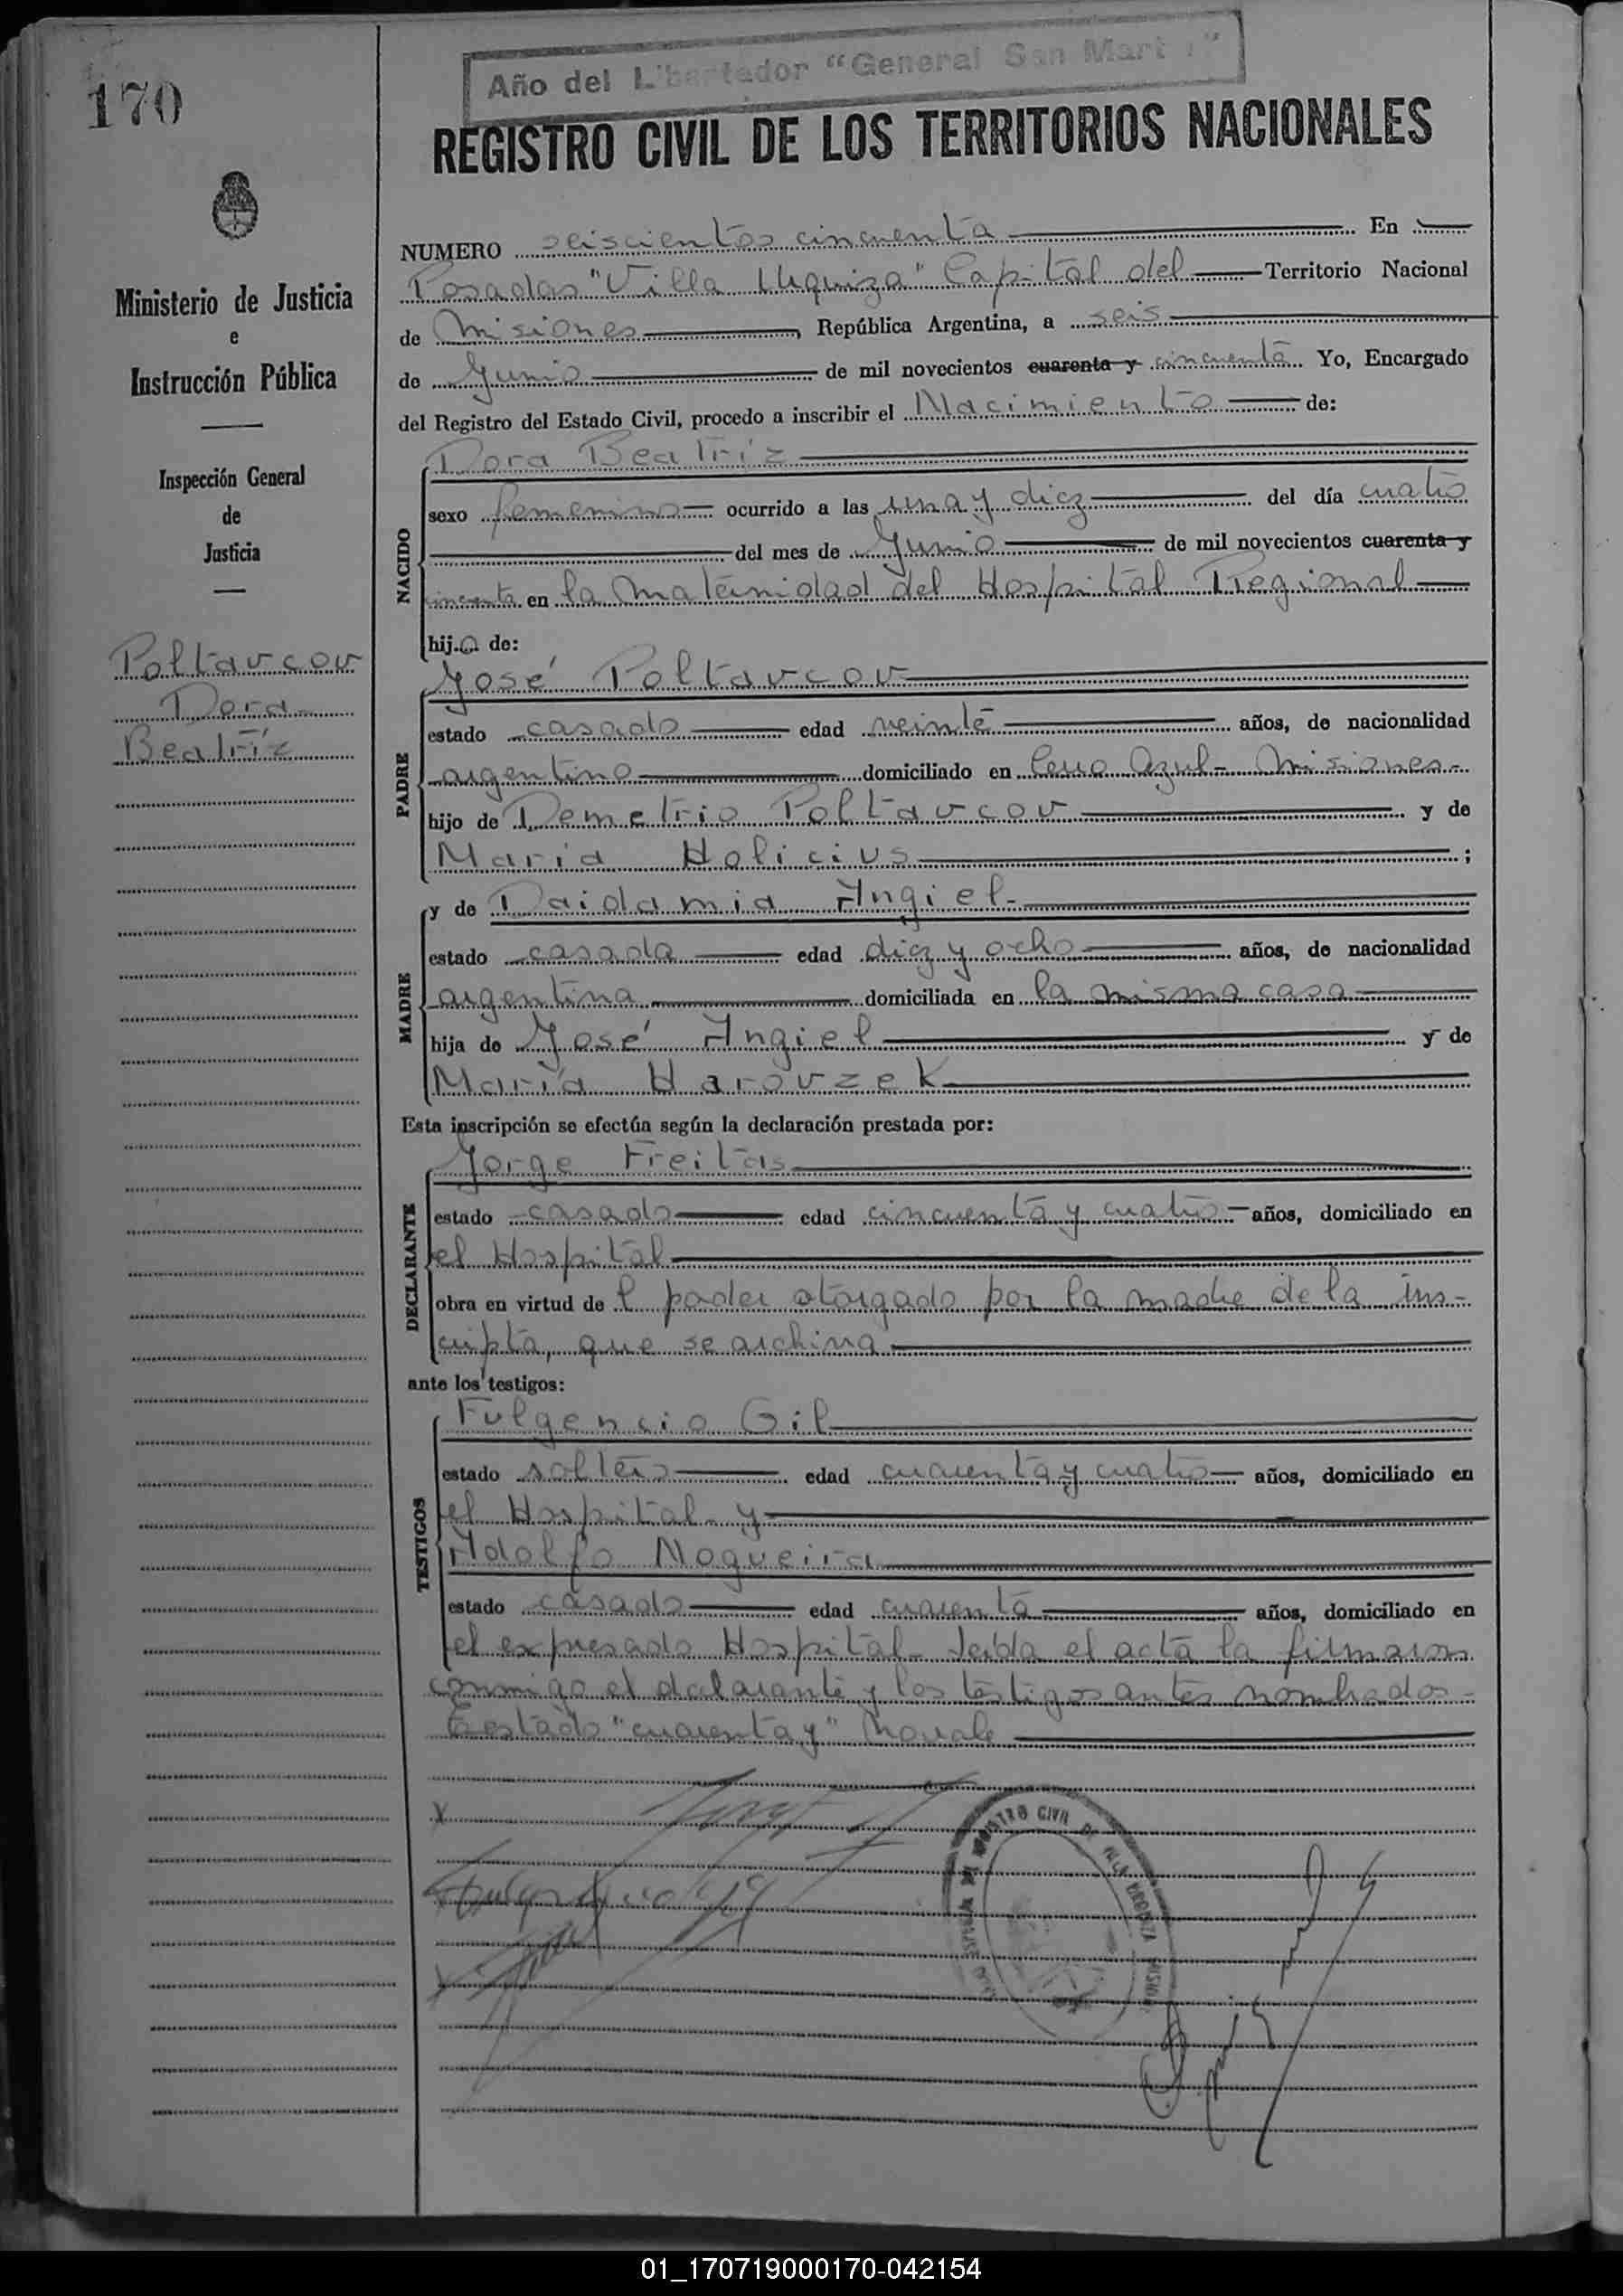 170
Año del Libertador "General San Martín"
REGISTRO CIVIL DE LOS TERRITORIOS NACIONALES
Ministerio de Justicia
e
Instrucción Pública
Inspección General
de
Justicia
Poltavcov
Dora
Beatríz
NUMERO seiscientos cincuenta En
Posadas "Villa Urquiza" Capital del Territorio Nacional
de Misiones, República Argentina, a seis
de Junio de mil novecientos cuarenta y cincuenta Yo, Encargado
del Registro del Estado Civil, procedo a inscribir el Nacimiento de:
NACIDO
Dora Beatríz
sexo femenino ocurrido a las una y diez del día cuatro
del mes de Junio de mil novecientos cuarenta y
cincuenta en la Maternidad del Hospital Regional
hija de:
PADRE
José Poltavcov
estado casado edad veinte años, de nacionalidad
argentino domiciliado en Cerro Azul - Misiones -
hijo de Demetrio Poltavcov y de
María Holicius;
MADRE
y de Daidamia Angiel -
estado casada edad diez y ocho años, de nacionalidad
argentina domiciliada en la misma casa
hija de José Angiel y de
María Harovzek
Esta inscripción se efectúa según la declaración prestada por:
DECLARANTE
Jorge Freitas
estado casado edad cincuenta y cuatro años, domiciliado en
el Hospital
obra en virtud del poder otorgado por la madre de la ins-
cripta, que se archiva
ante los testigos:
TESTIGOS
Fulgencio Gil
estado soltero edad cuarenta y cuatro años, domiciliado en
el Hospital y
Adolfo Nogueira
estado casado edad cuarenta años, domiciliado en
el expresado Hospital - Leída el acta la firmaron
conmigo el declarante y los testigos antes nombrados -
Testado "cuarenta y" No vale
REGISTRO CIVIL DE VILLA URQUIZA
01_170719000170-042154